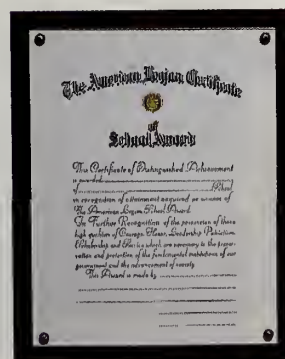 The American Legion Certificate
of
School Award
This Certificate of Distinguished Achievement
is awarded
of School
in recognition of attainment acquired as winner of
The American Legion School Award.
In Further Recognition of the possession of those
high qualities of Courage, Honor, Leadership, Patriotism,
Scholarship and Service which are necessary to the preser-
vation and protection of the fundamental institutions of our
government and the advancement of society.
This Award is made by